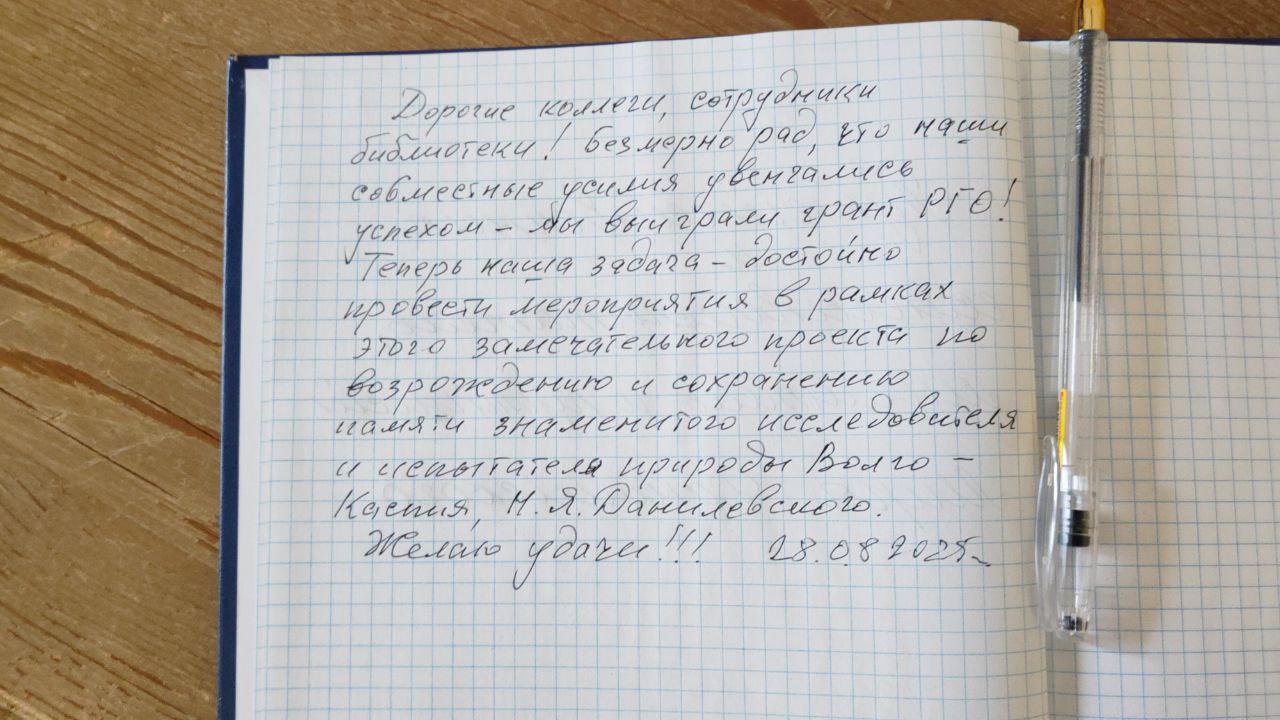 Дорогие коллеги, сотрудники
библиотеки! Безмерно рад, что наши
совместные усилия увенчались
успехом – мы выиграли грант РГО!
Теперь наша задача – достойно
провести мероприятия в рамках
этого замечательного проекта по
возрождению и сохранению
памяти знаменитого исследователя
и испытателя природы Волго –
Каспия, Н. Я. Данилевского.
Желаю удачи!!! 28.08 2025г.